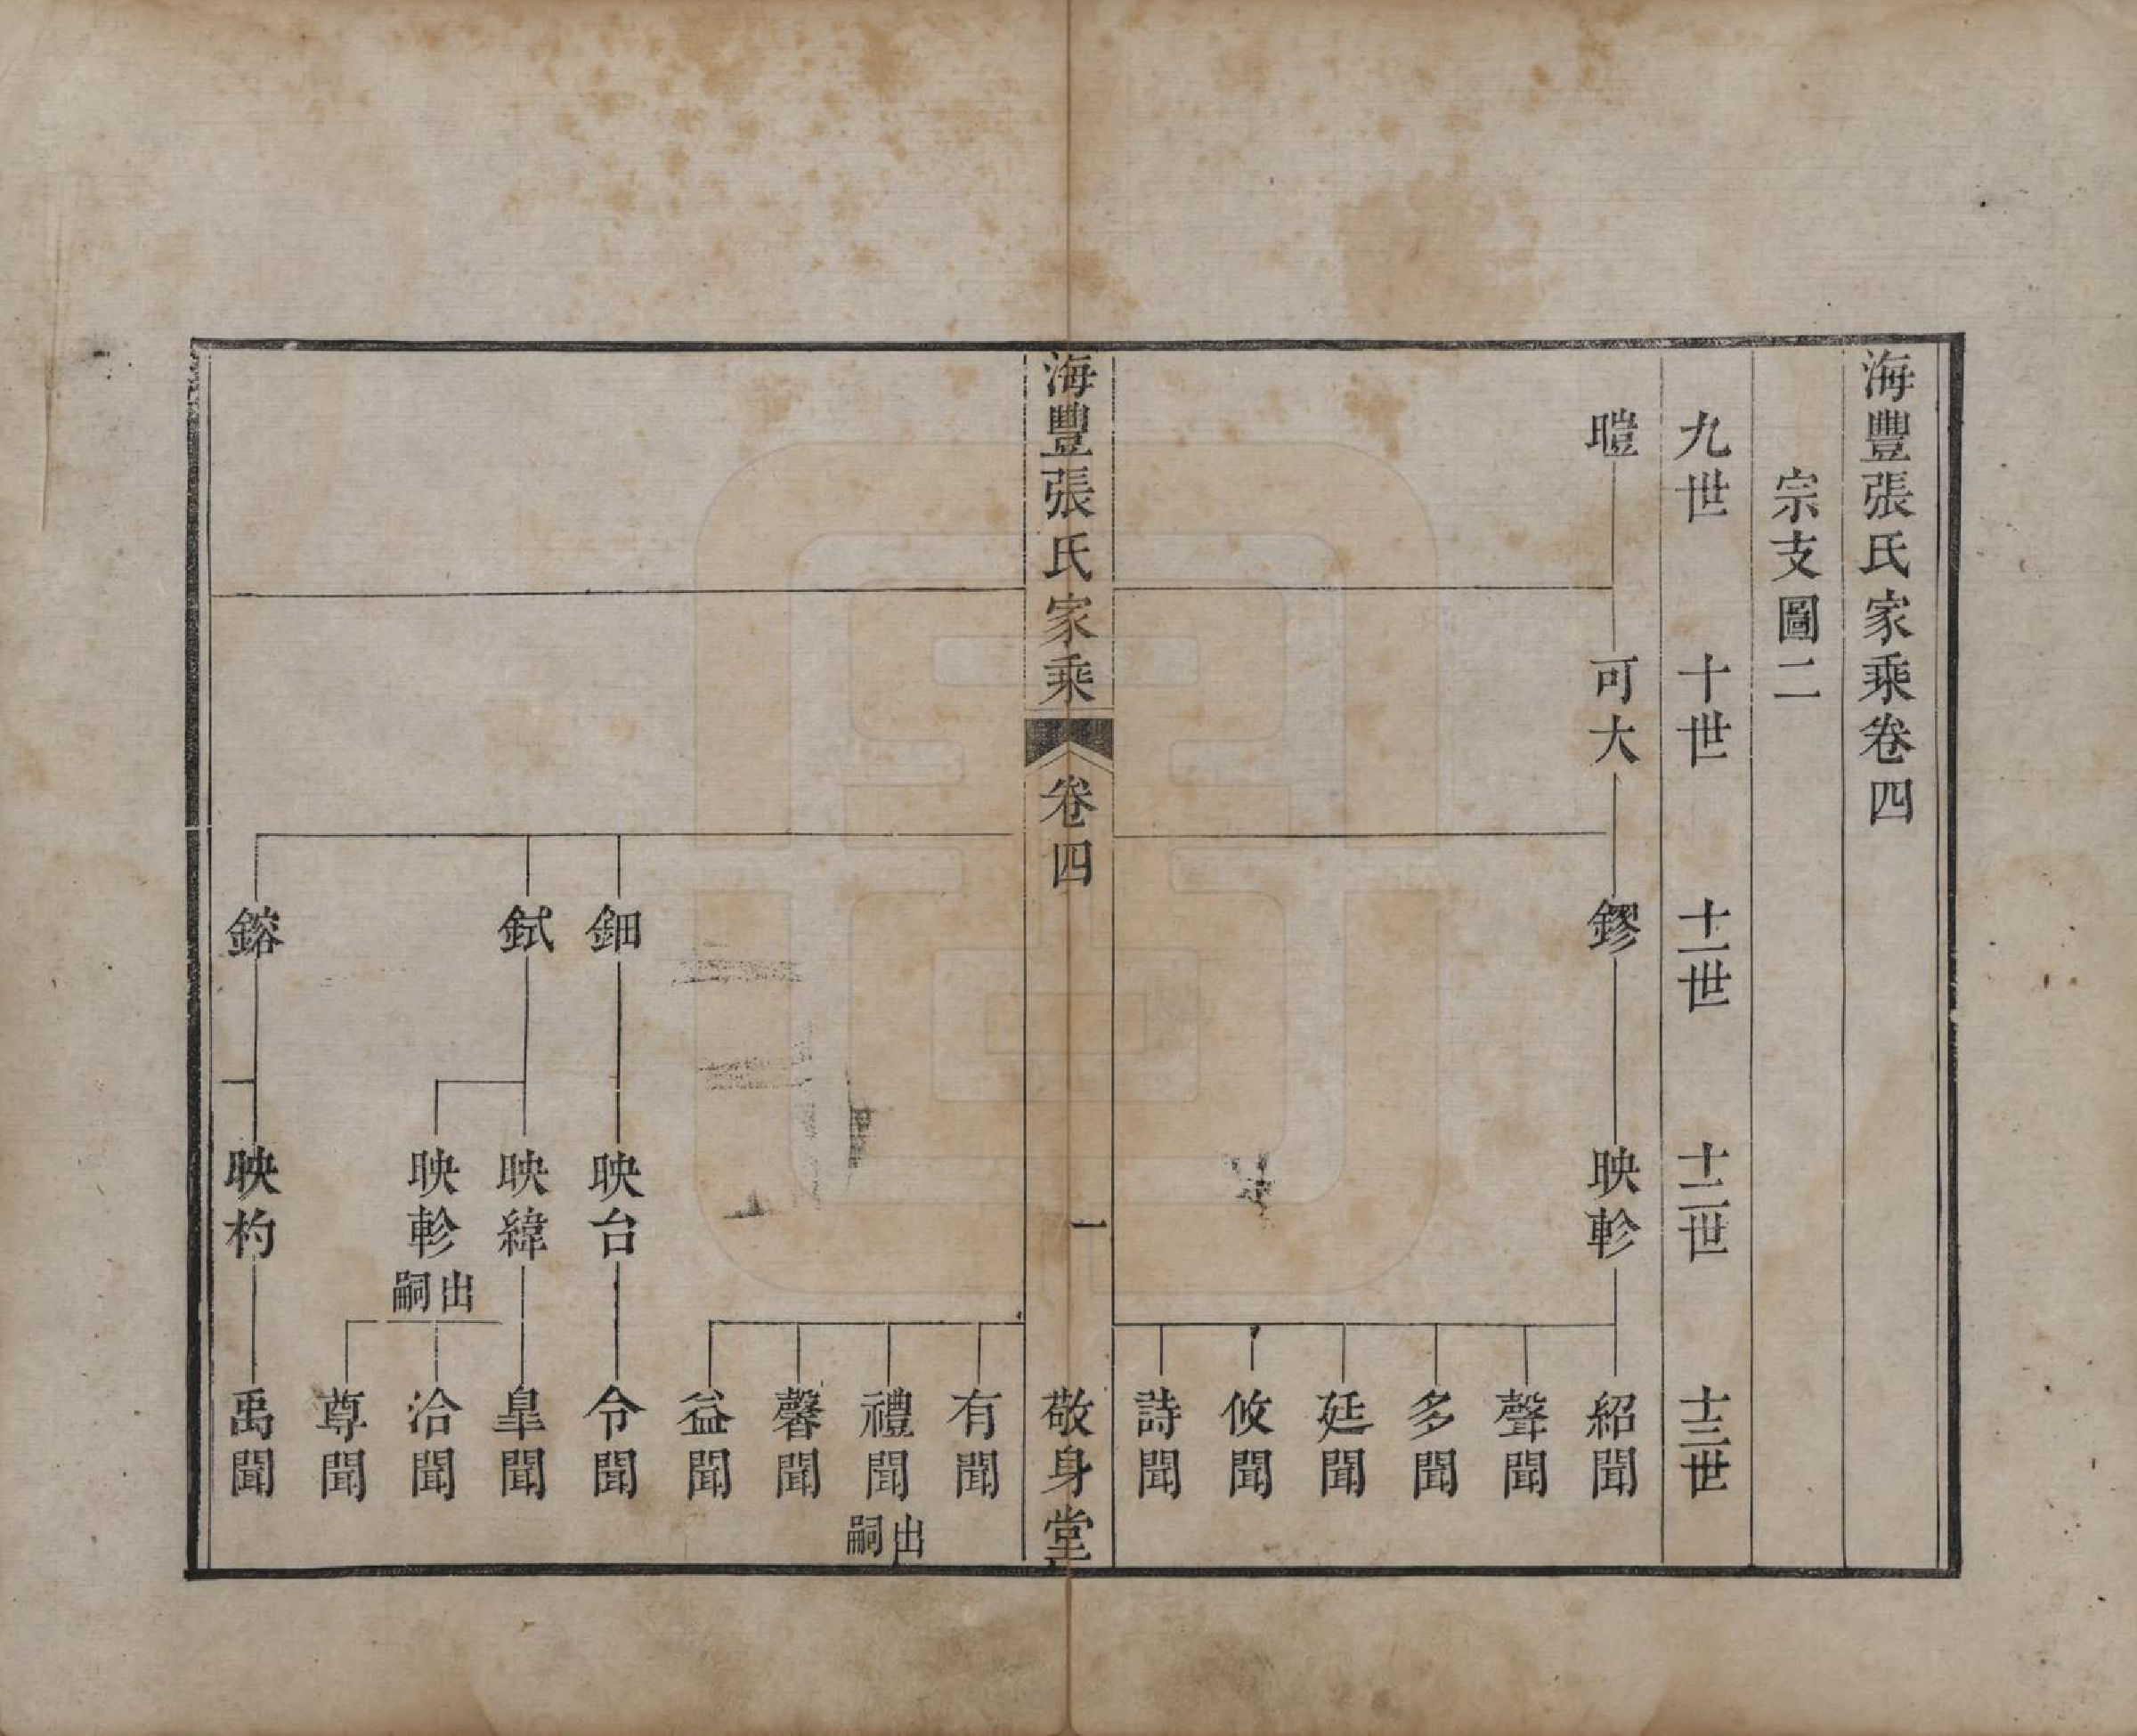 海豐張氏家乘卷四
宗支圖二
九世 十世 十一世 十二世 十三世
暟 可大 鏐 映軫 紹聞
聲聞
多聞
延聞
攸聞
詩聞
海豐張氏家乘 卷四 一 敬身堂
有聞
禮聞 出嗣
馨聞
益聞
鈿 映台 令聞
鉽 映緯 皐聞
映軫 出嗣 洽聞
尊聞
鎔 映杓 禹聞